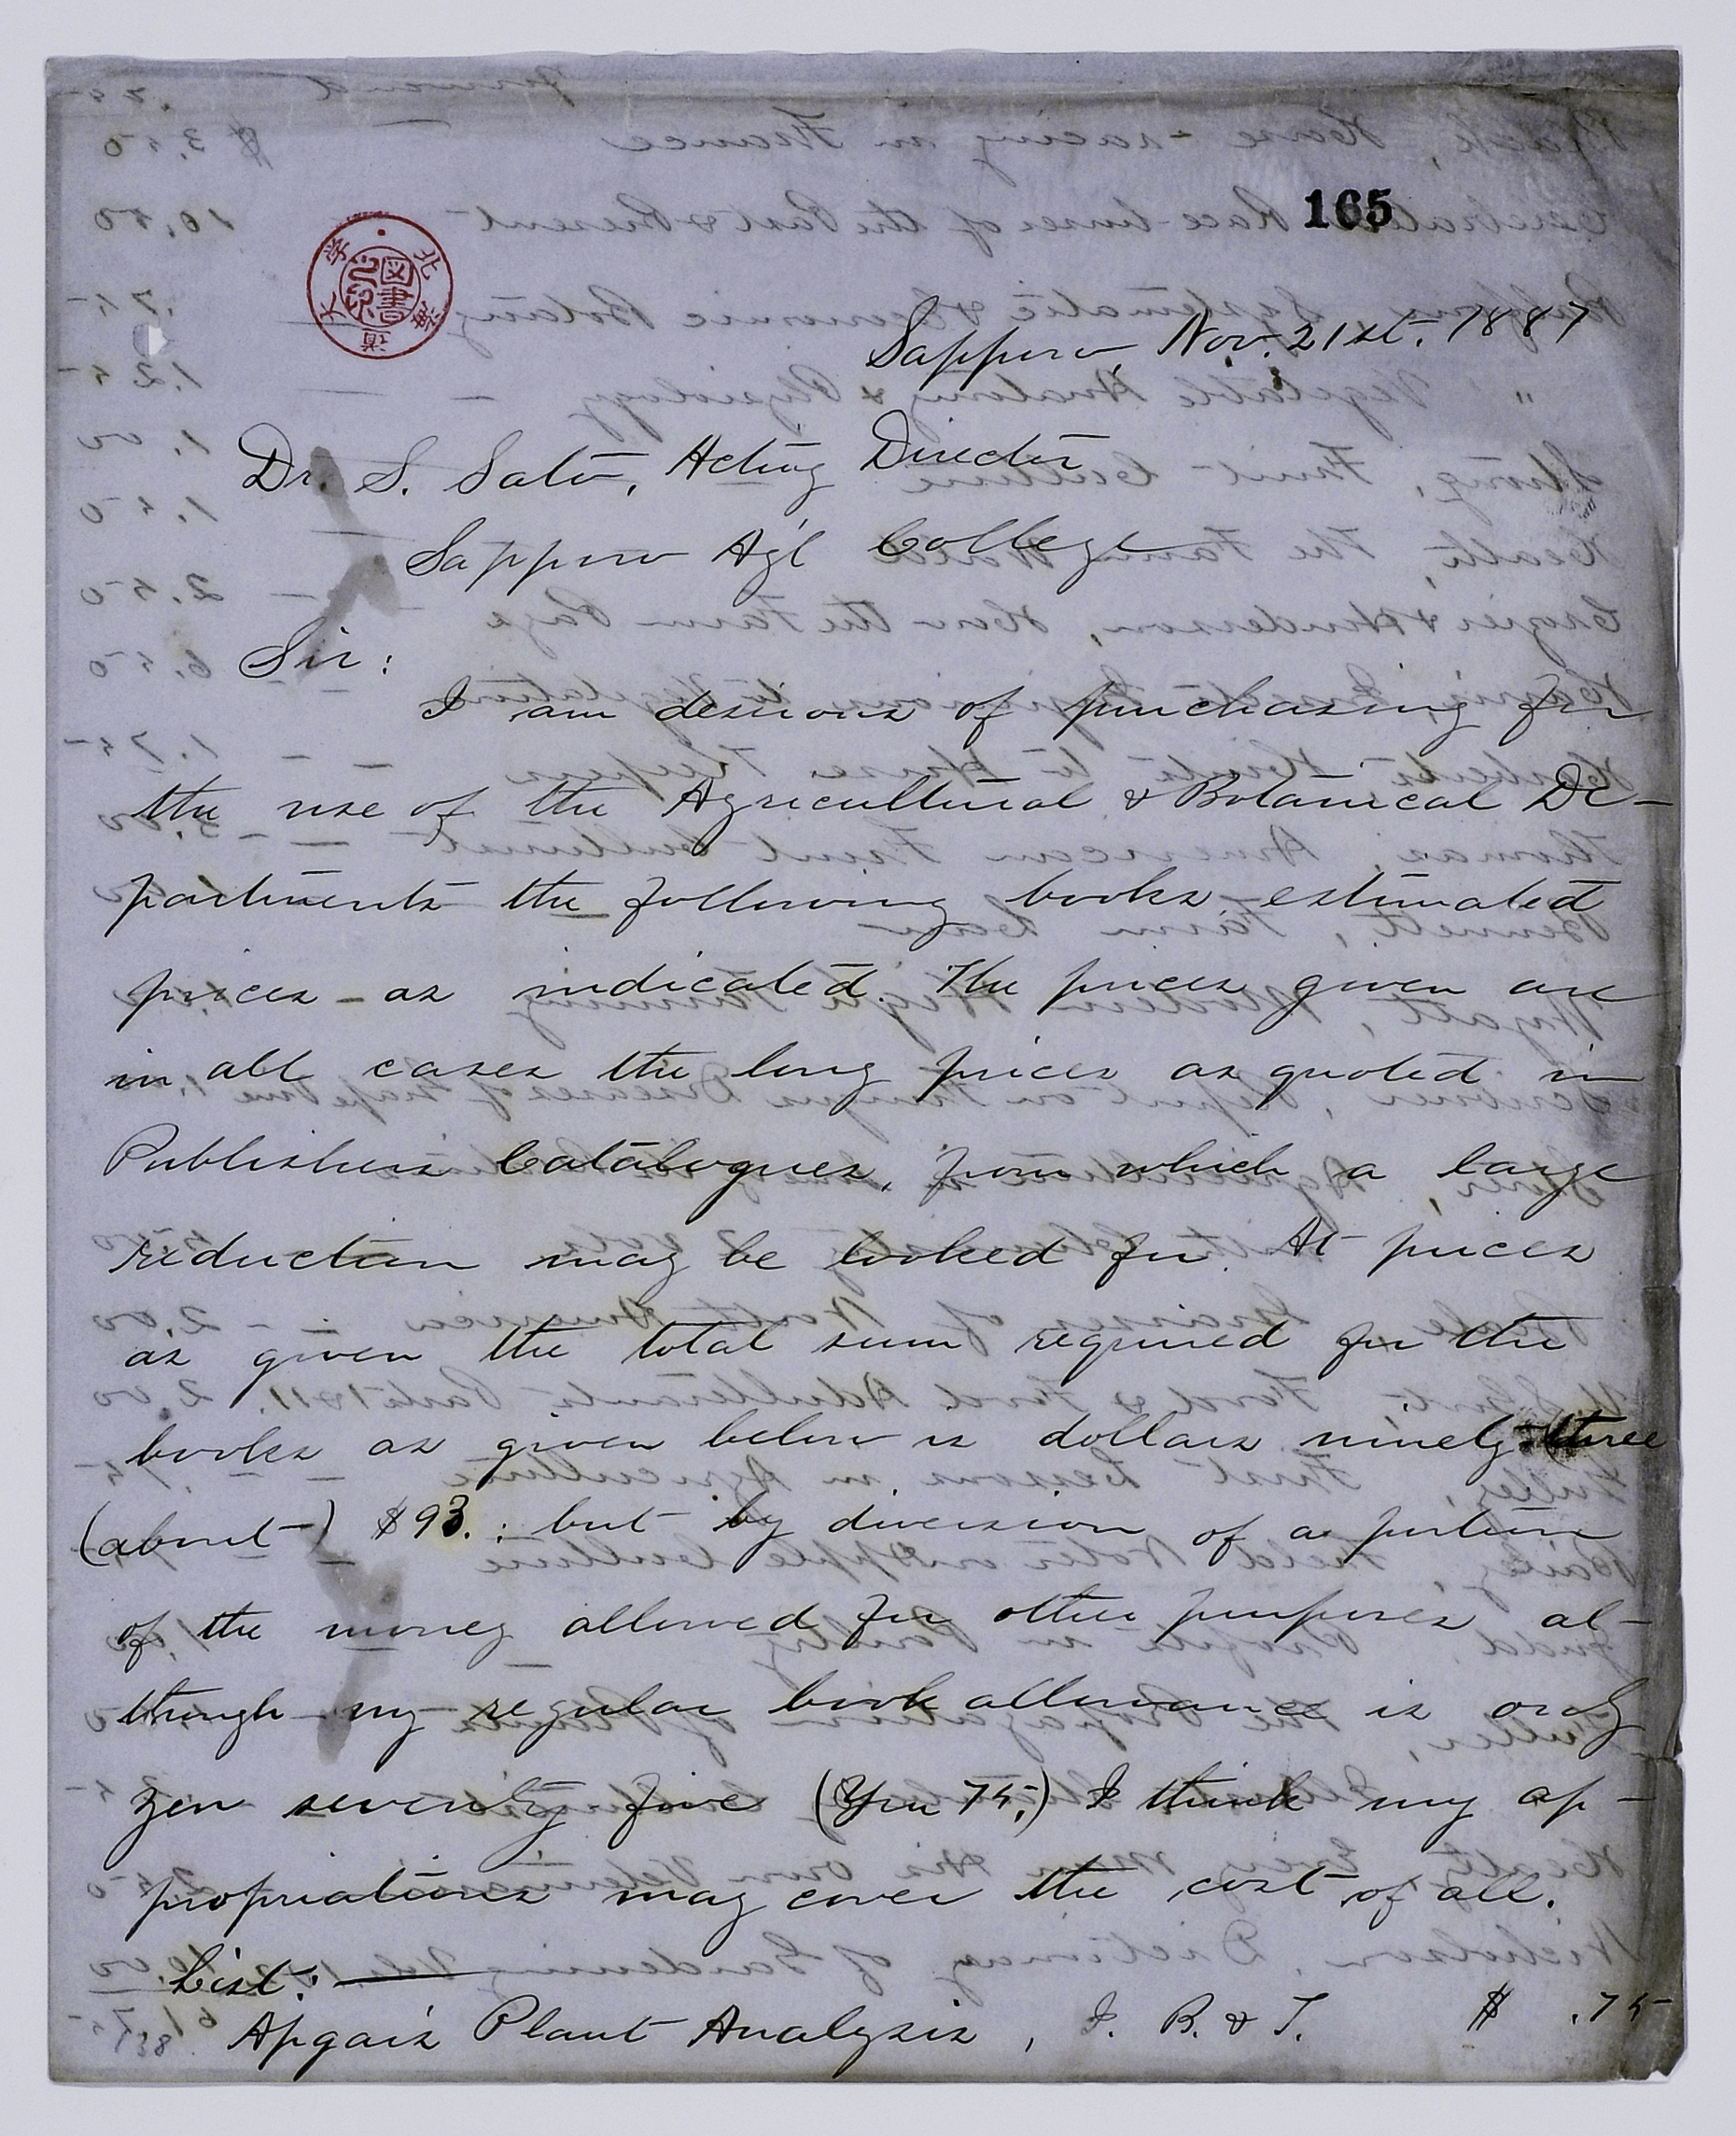 165
北海道大学
図書之印
Sapporo, Nov. 21st. 1887
Dr. S. Sato, Acting Director
Sapporo Agl College
Sir:
I am desirous of purchasing for
the use of the Agricultural & Botanical De-
partments the following books, estimated
prices as indicated. The prices given are
in all cases the long prices as quoted in
Publishers Catalogues, from which a large
reduction may be looked for. At prices
as given the total sum required for the
books as given below is dollars ninety-three
(about) $93.: but by diversion of a portion
of the money allowed for other purposes al-
though my regular book allowance is only
yen seventy five (Yen 75.) I think my ap-
propriations may cover the cost of all.
List:
Apgar's Plant Analysis, I. B. & T. $ .75